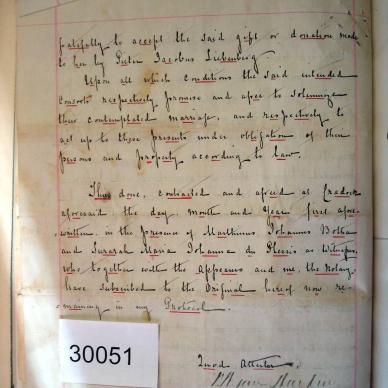 gratefully to accept the said gift or donation made
to her by Pieter Jacobus Liebenberg
Upon all which conditions the said intended
Consorts respectively promise and agree to solemnize
their contemplated marriage, and respectively to
act up to these presents under obligation of their
persons and property according to law.
Thus done, contracted and agreed at Cradock
aforesaid the day, month and year first afore
written, in the presence of Marthinus Johannes Botha
and Surarah Maria Johanna du Plessis as Witnesses,
who together with the appearers and me, the Notary,
have subscribed to the Original hereof now re-
maining in my Protocol.
Quod Attestor
30051